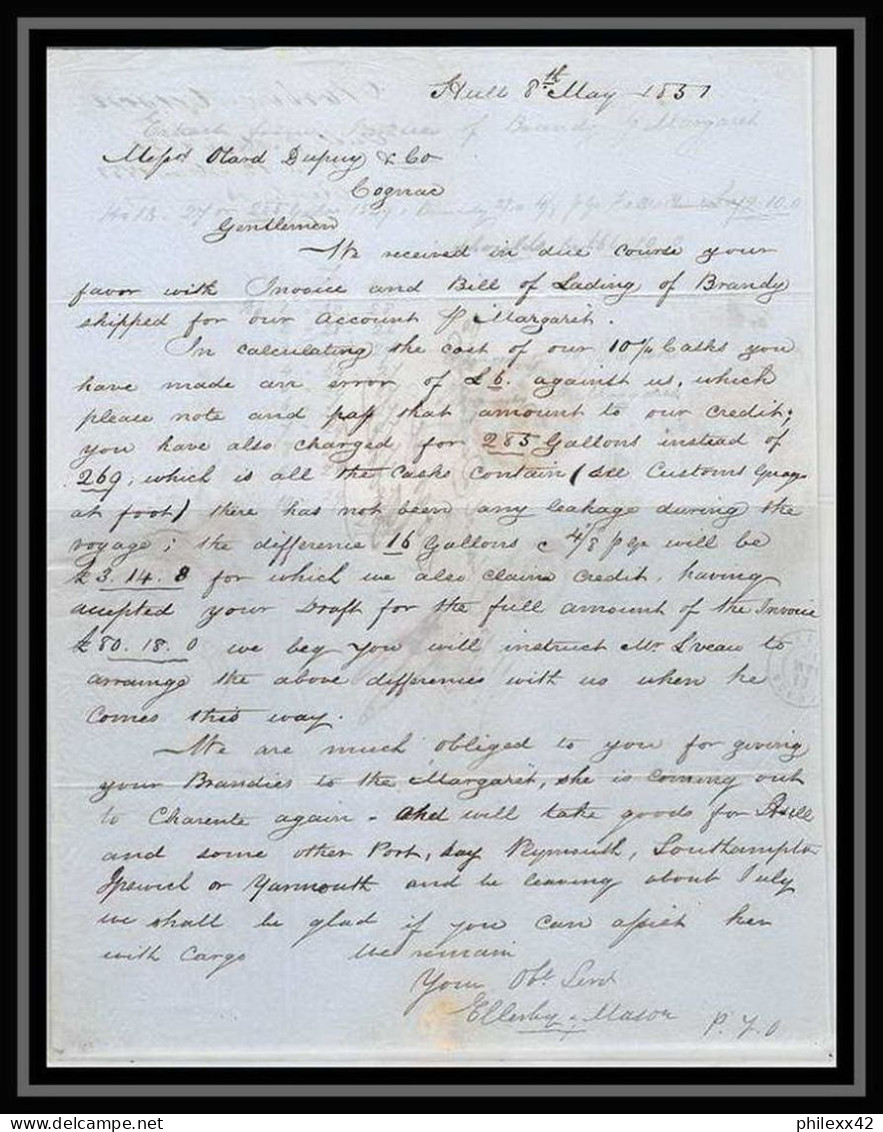 Hull 8th May 1851
Messrs Otard Dupuy & Co
Cognac
Gentlemen
We received in due course your
favor with Invoice and Bill of Lading of Brandy
shipped for our account p Margaret.
In calculating the cost of our 10 Casks you
have made an error of £6. against us, which
please note and pass that amount to our credit;
you have also charged for 285 Gallons instead of
269, which is all the casks contain (see Customs Guage
at foot) there has not been any leakage during the
voyage; the difference 16 Gallons @ 4/8 p Ga will be
£3.14.8 for which we also claim credit, having
accepted your Draft for the full amount of the Invoice
£80.18.0 we beg you will instruct Mr to
arrange the above differences with us when he
comes this way.
We are much obliged to you for giving
your Brandies to the Margaret, she is coming out
to Charente again - And will take goods for Hull
and some other Port, say Plymouth, Southampton
Ipswich or Yarmouth and be leaving about July
we shall be glad if you can assist her
with Cargo We remain
Your Obt Servt
Ellerby & Mason P.T.O
philexx42